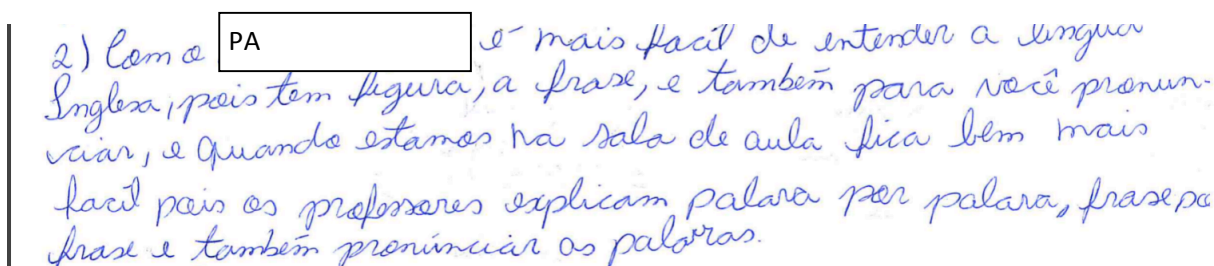 2) Com o PA é mais facil de entender a lingua
Inglesa, pois tem figura, a frase, e também para você pronun-
ciar, e quando estamos na sala de aula fica bem mais
facil pois os professores explicam palava por palava, frase po
frase e também pronúnciar as palavras.